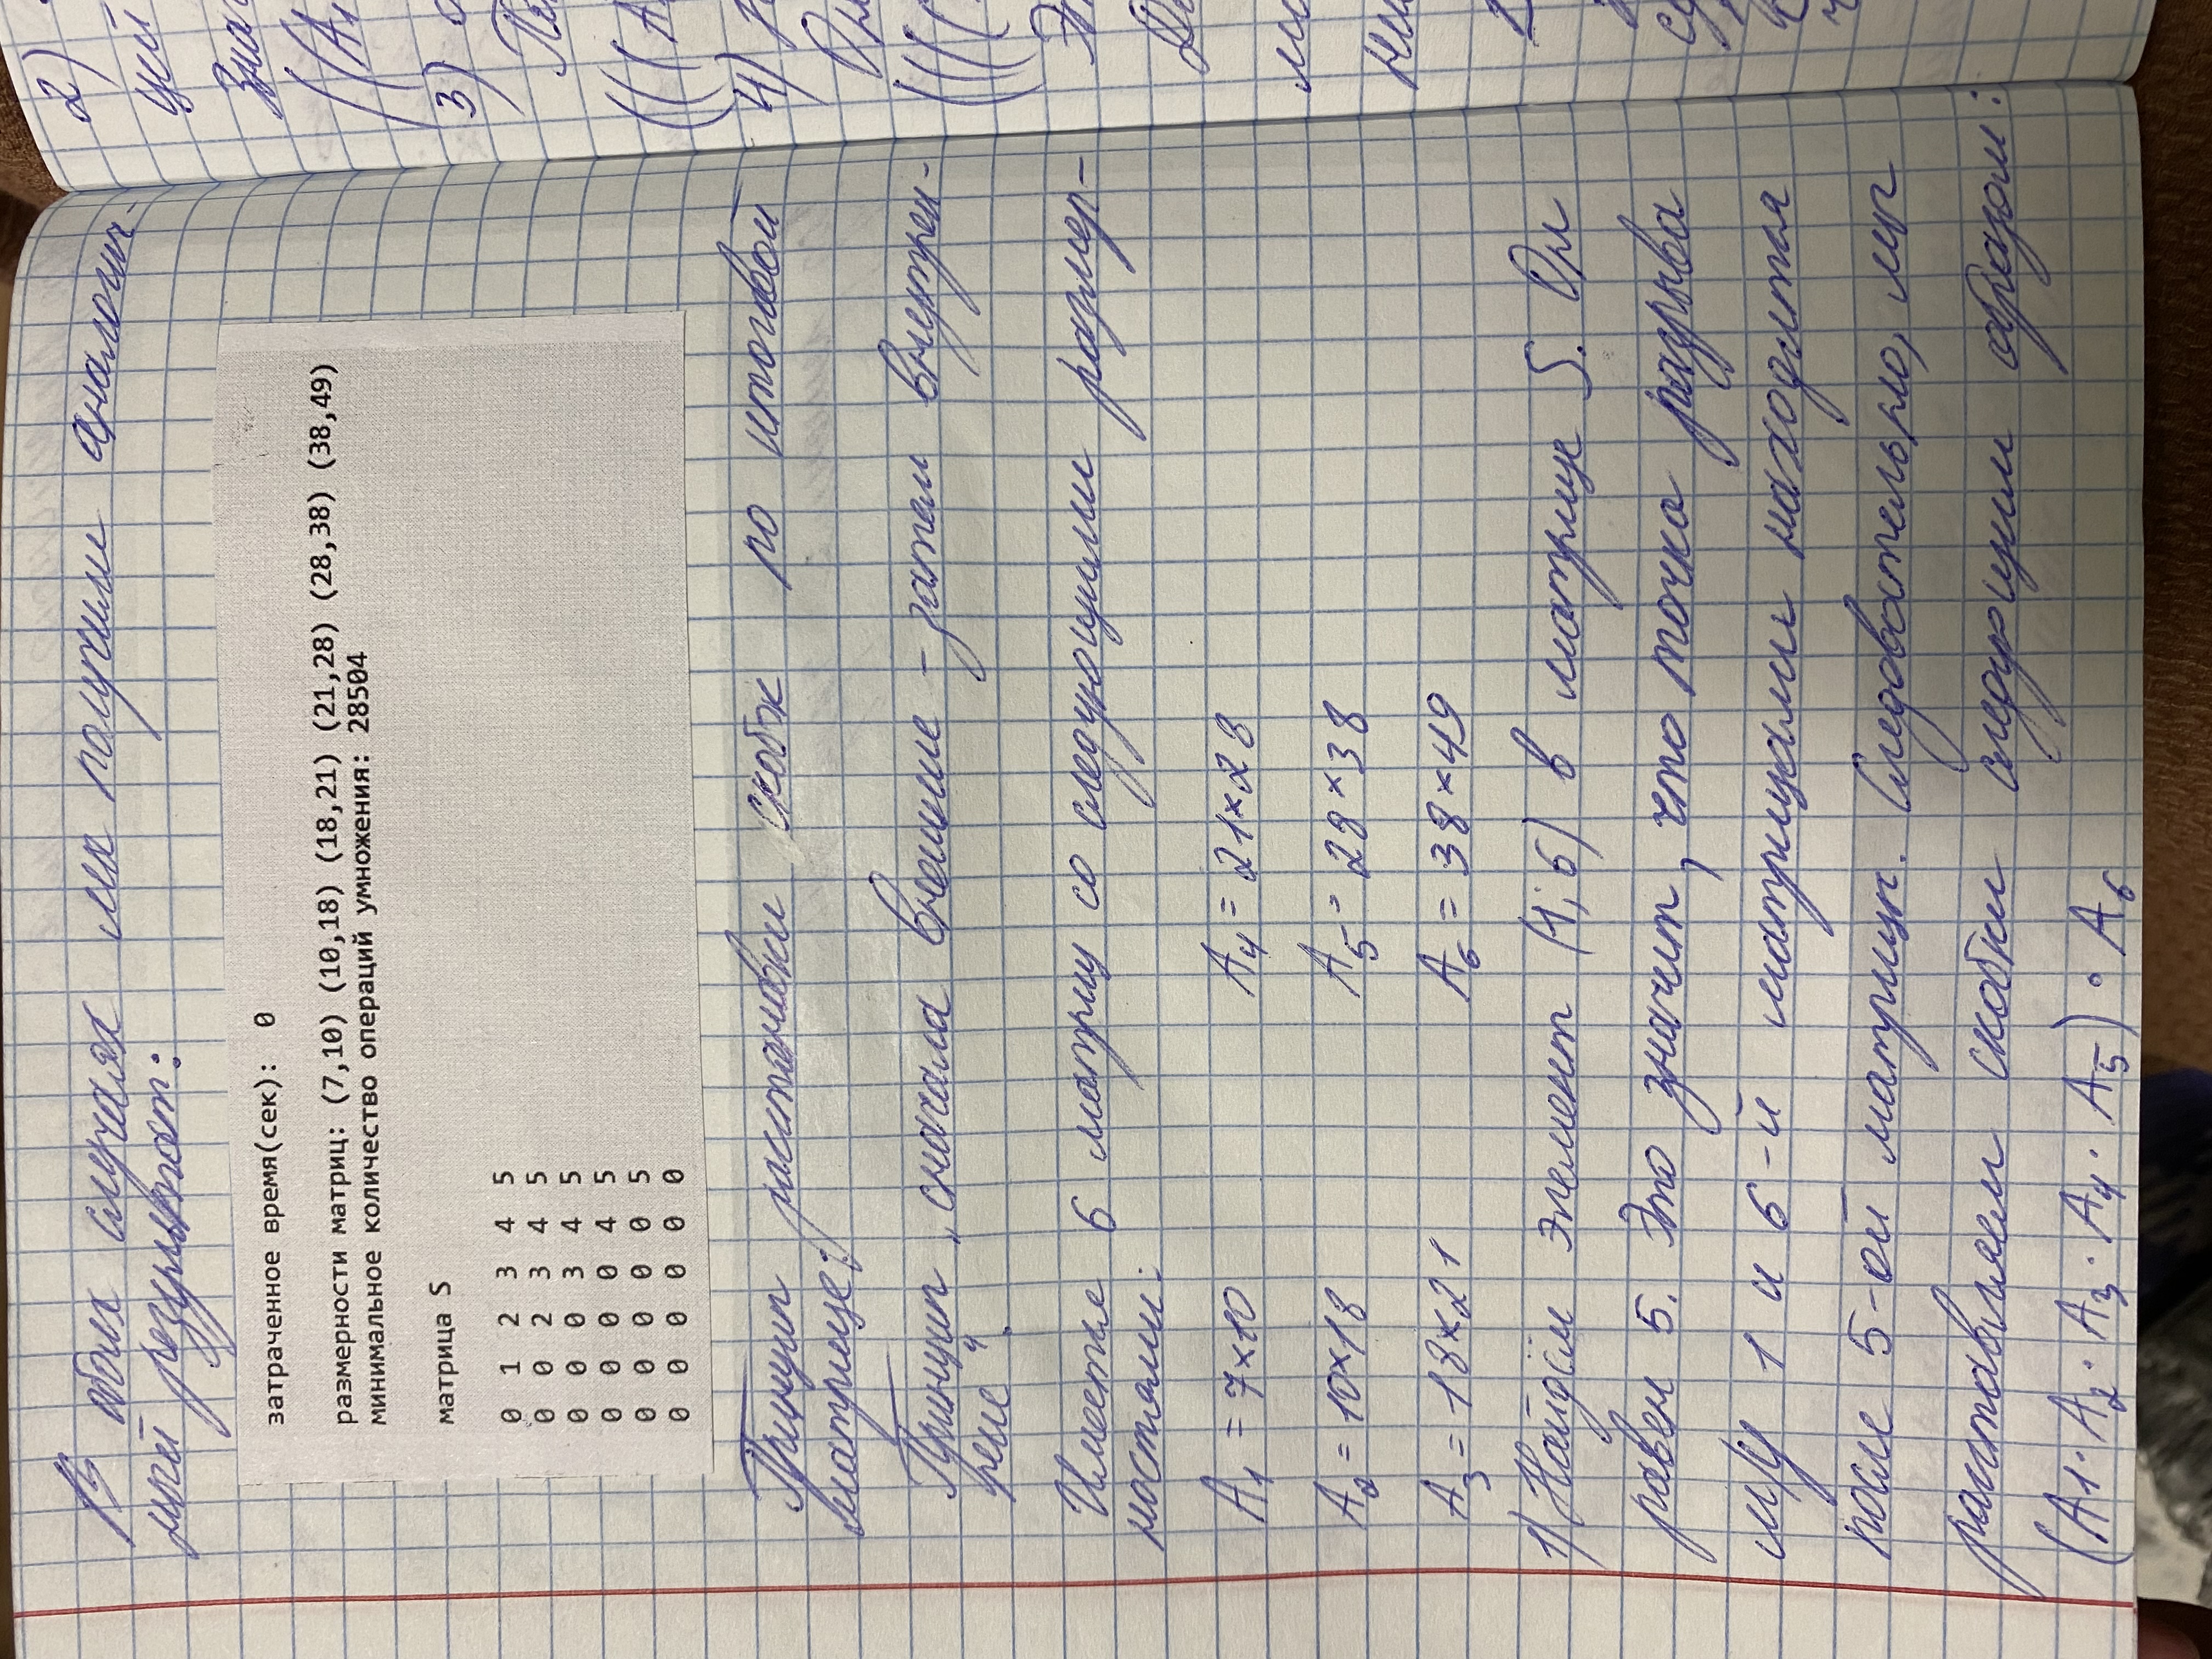 В обоих случаях мы получили аналогич-
ный результат:
затраченное время(сек): 0
размерности матриц: (7,10) (10,18) (18,21) (21,28) (28,38) (38,49)
минимальное количество операций умножения: 28504
матрица S
0 1 2 3 4 5
0 0 2 3 4 5
0 0 0 3 4 5
0 0 0 0 4 5
0 0 0 0 0 5
0 0 0 0 0 0
Принцип расстановки скобок по итоговой
матрице:
Принцип „сначала внешние - затем внутрен-
ние“.
Имеется 6 матриц со следующими размер-
ностями:
A1 = 7×10 A4 = 21×28
A2 = 10×18 A5 = 28×38
A3 = 18×21 A6 = 38×49
1) Найдём элемент (1; 6) в матрице S. Он
равен 5. Это значит, что точка разрыва
м/у 1 и 6-й матрицами находится
после 5-ой матрицы. Следовательно, мы
расставляем скобки следующим образом:
(A1 · A2 · A3 · A4 · A5) · A6
2)
цей
((A1
3)
(((A
4)
(((